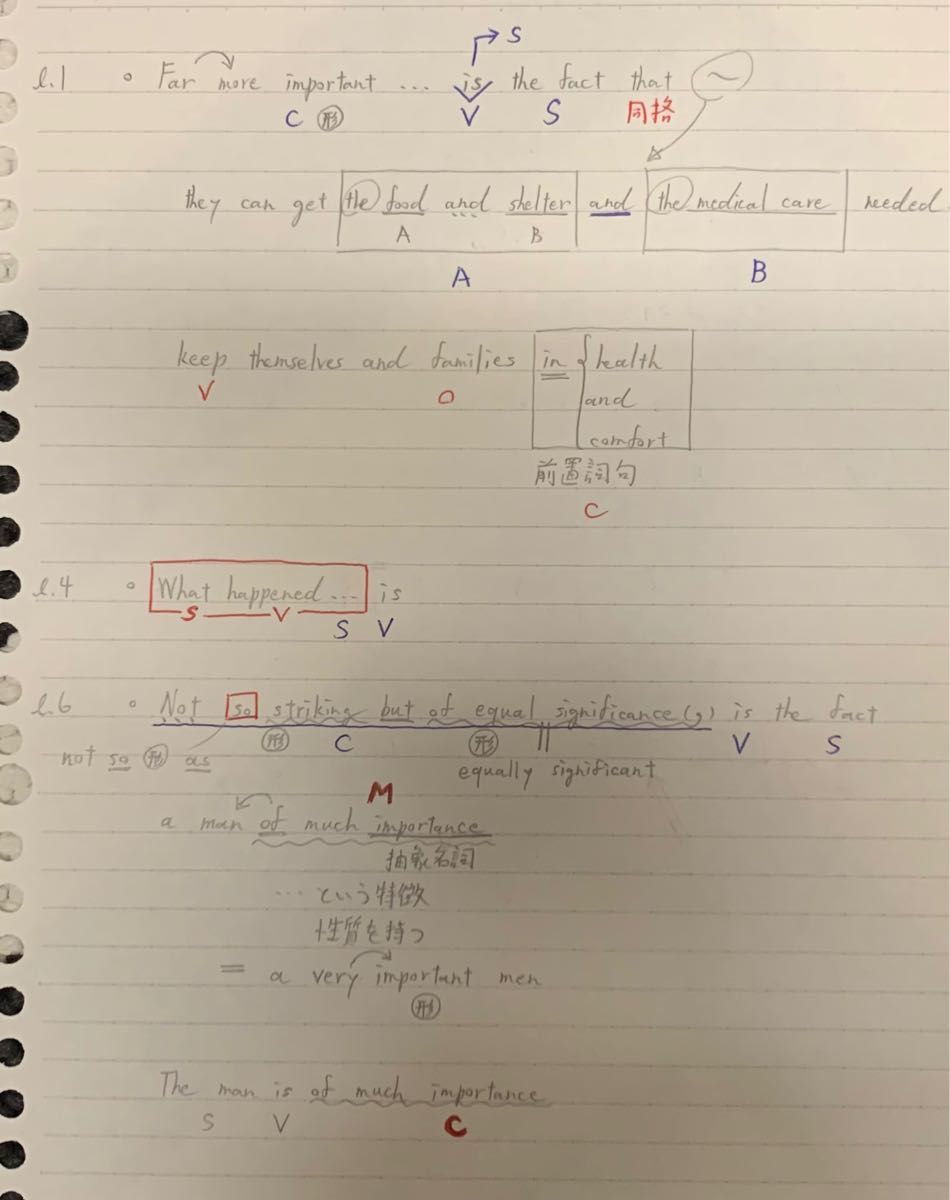 → S
l.1 。Far more important ... is the fact that 〜
C 形 V S 同格
they can get the food and shelter and the medical care needed
A B
A B
keep themselves and families in { health
and
comfort
V O
前置詞句
C
l.4 。What happened ... is
S V
S V
l.6 。Not so striking but of equal significance(,) is the fact
形 C 形 || V S
not so 形 as equally significant
M
a man of much importance
抽象名詞
…という特徴
性質を持つ
= a very important men
形
The man is of much importance
S V C